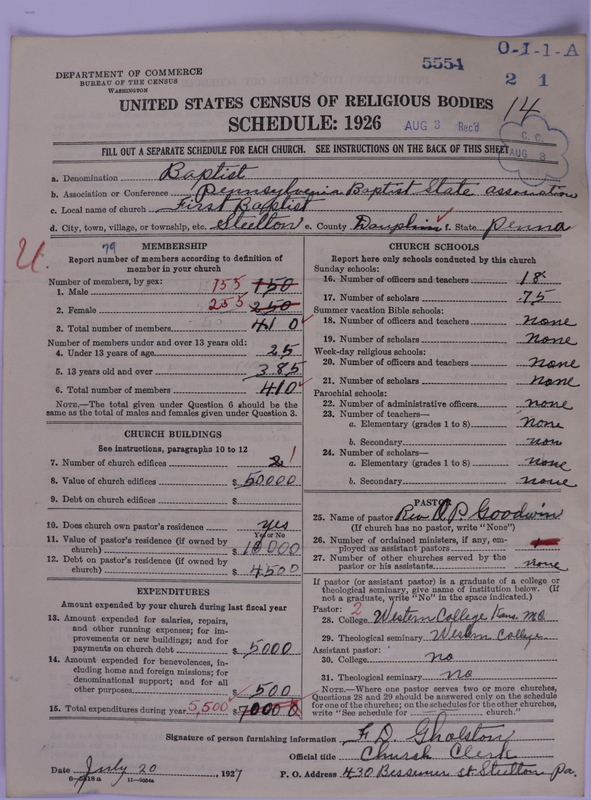 5554
O-I-1-A
DEPARTMENT OF COMMERCE
BUREAU OF THE CENSUS
WASHINGTON
2 1
UNITED STATES CENSUS OF RELIGIOUS BODIES
14
SCHEDULE: 1926
AUG 3 Rec'd
C. C.
AUG 3
FILL OUT A SEPARATE SCHEDULE FOR EACH CHURCH. SEE INSTRUCTIONS ON THE BACK OF THIS SHEET
a. Denomination Baptist
b. Association or Conference Pennsylvania Baptist State association
c. Local name of church First Baptist
d. City, town, village, or township, etc. Steelton e. County Dauphin f. State Penna
U.
79
MEMBERSHIP
Report number of members according to definition of member in your church
Number of members, by sex:
1. Male 155 150
2. Female 255 250
3. Total number of members 410
Number of members under and over 13 years old:
4. Under 13 years of age 25
5. 13 years old and over 385
6. Total number of members 410
NOTE.—The total given under Question 6 should be the same as the total of males and females given under Question 3.
CHURCH BUILDINGS
See instructions, paragraphs 10 to 12
7. Number of church edifices 2 1
8. Value of church edifices $ 50000
9. Debt on church edifices $
10. Does church own pastor's residence yes
Yes or No
11. Value of pastor's residence (if owned by church) $ 10000
12. Debt on pastor's residence (if owned by church) $ 4500
EXPENDITURES
Amount expended by your church during last fiscal year
13. Amount expended for salaries, repairs, and other running expenses; for improvements or new buildings; and for payments on church debt $ 5000
14. Amount expended for benevolences, including home and foreign missions; for denominational support; and for all other purposes $ 500
15. Total expenditures during year 5,500 $ 70000
CHURCH SCHOOLS
Report here only schools conducted by this church
Sunday schools:
16. Number of officers and teachers 18
17. Number of scholars 75
Summer vacation Bible schools:
18. Number of officers and teachers none
19. Number of scholars none
Week-day religious schools:
20. Number of officers and teachers none
21. Number of scholars none
Parochial schools:
22. Number of administrative officers none
23. Number of teachers—
a. Elementary (grades 1 to 8) none
b. Secondary non
24. Number of scholars—
a. Elementary (grades 1 to 8) none
b. Secondary none
PASTOR
25. Name of pastor Rev P. Goodwin
(If church has no pastor, write "None")
26. Number of ordained ministers, if any, employed as assistant pastors
27. Number of other churches served by the pastor or his assistants none
If pastor (or assistant pastor) is a graduate of a college or theological seminary, give name of institution below. (If not a graduate, write "No" in the space indicated.)
Pastor: 2
28. College Western College Kans. Mo
29. Theological seminary Western College
Assistant pastor:
30. College no
31. Theological seminary no
NOTE.—Where one pastor serves two or more churches, Questions 28 and 29 should be answered only on the schedule for one of the churches; on the schedules for the other churches, write "See schedule for church."
Signature of person furnishing information F. D. Gholston
Official title Church Clerk
Date July 20, 1927 P. O. Address 430 Bessemer st. Steelton Pa.